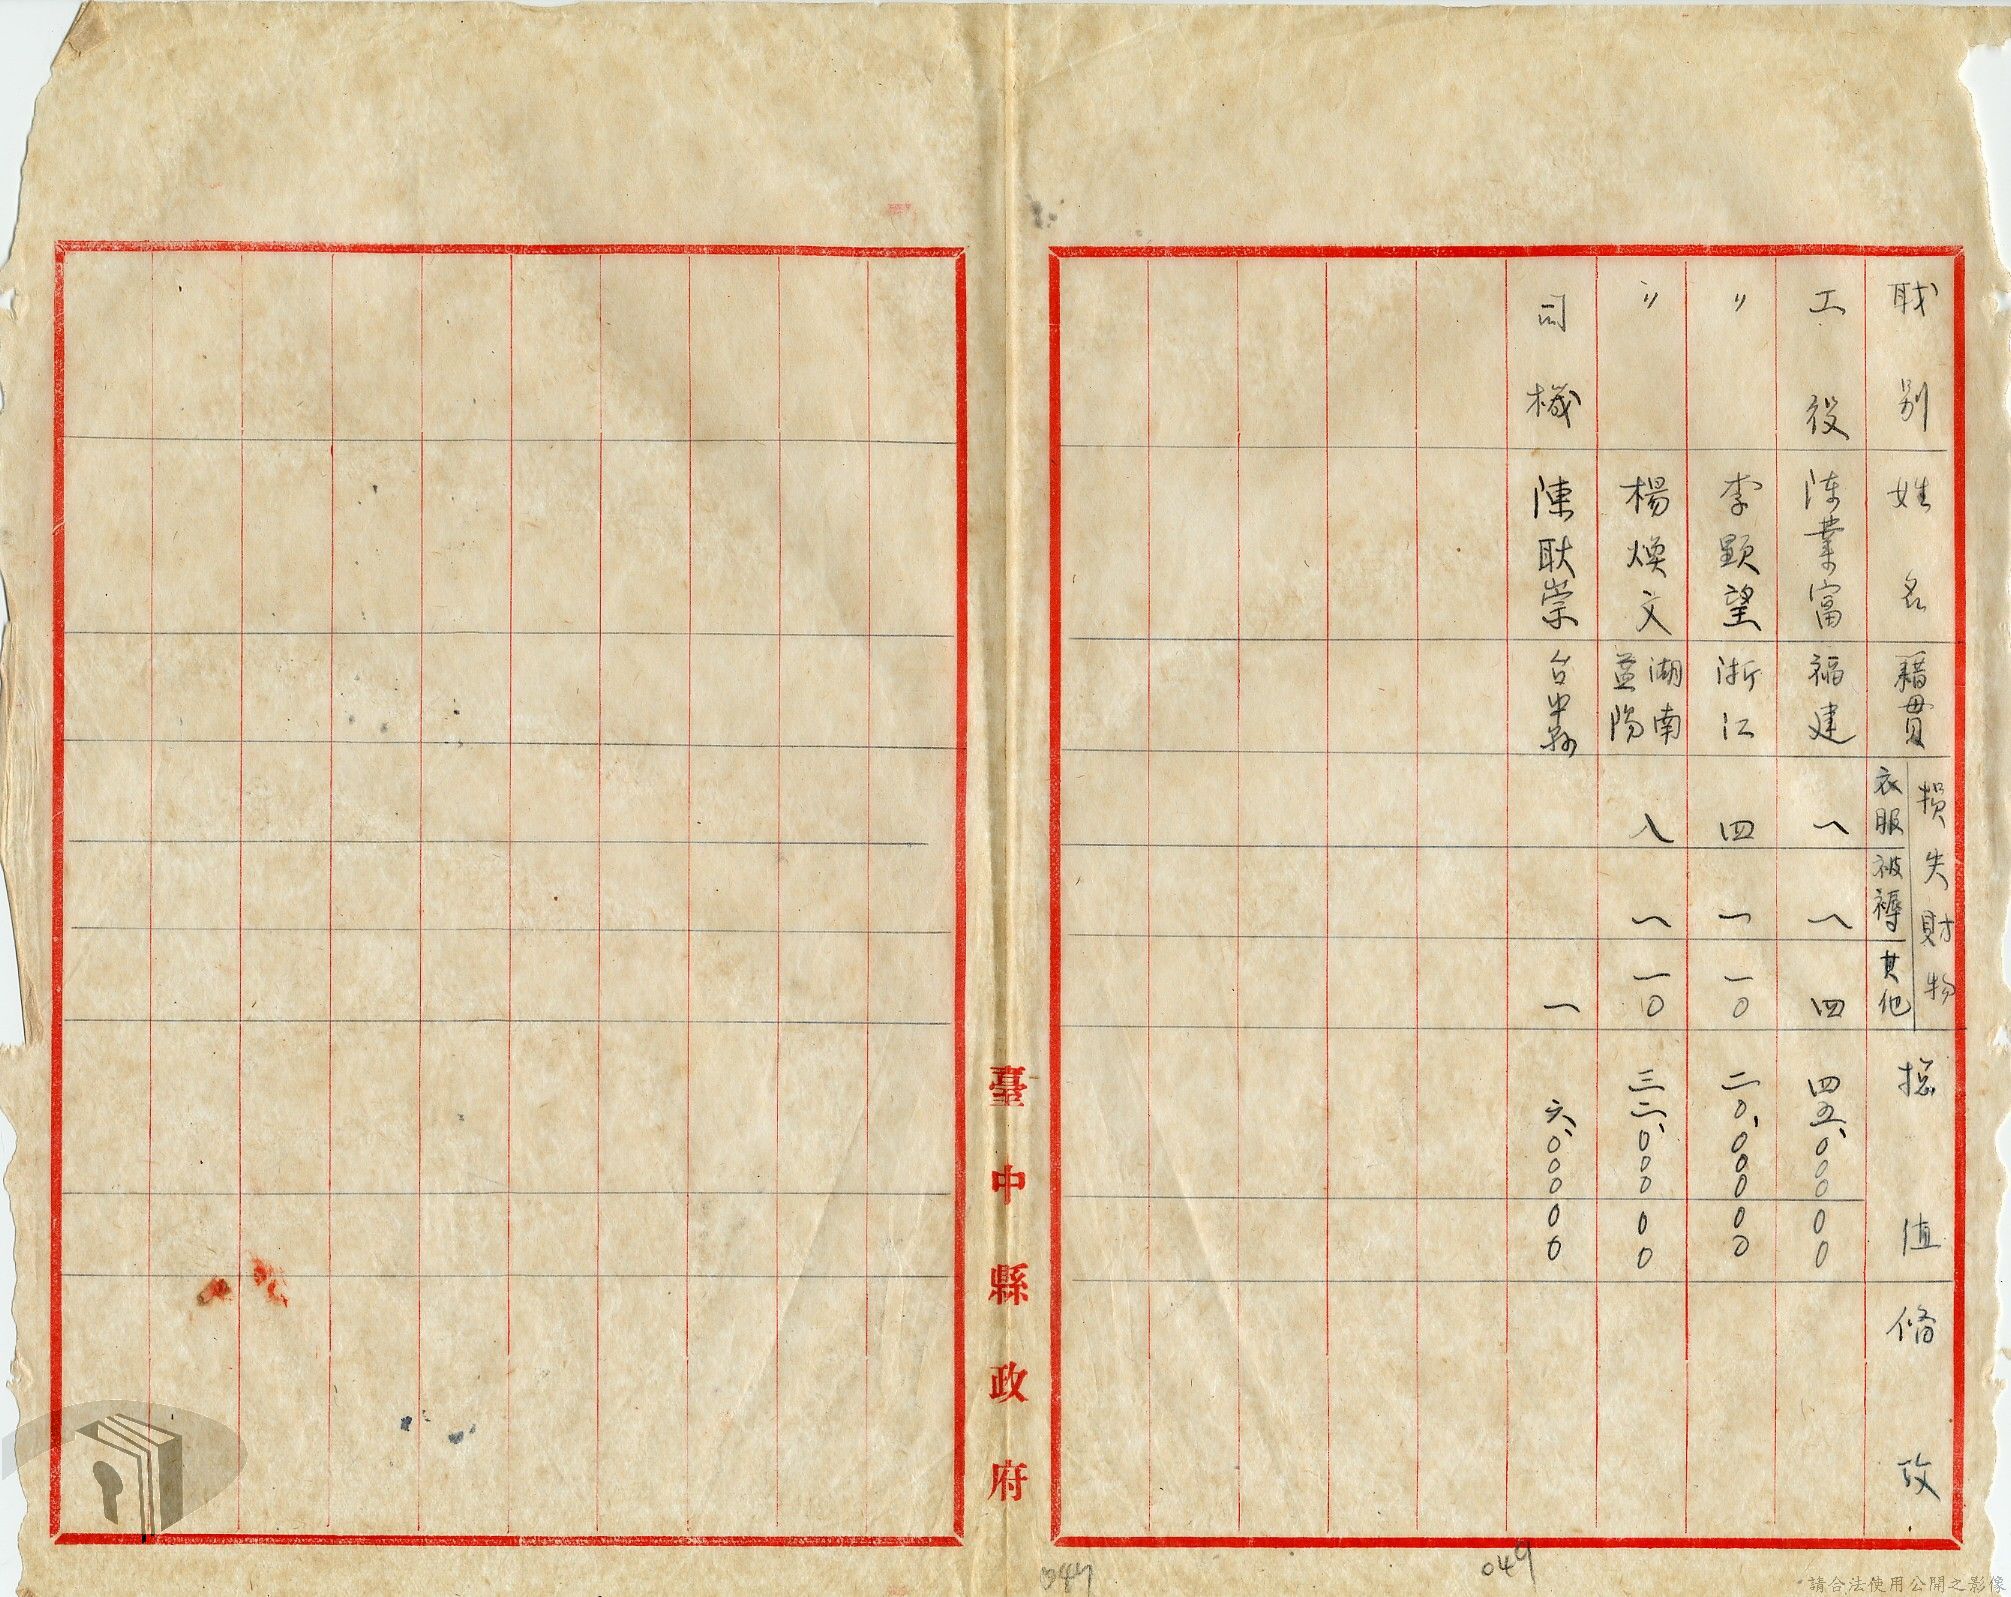 職別 姓名 籍貫 損失財物 衣服 被褥 其他 總值 備攷
工役 陈業富 福建 一 一 四 四五、〇〇〇〇〇
〃 李顕望 浙江 四 一 一〇 二〇、〇〇〇〇〇
〃 楊煥文 湖南益陽 八 一 一〇 三二、〇〇〇〇〇
司機 陳耿崇 台中縣 一 六、〇〇〇〇〇
臺中縣政府
047
049
請合法使用公開之影像